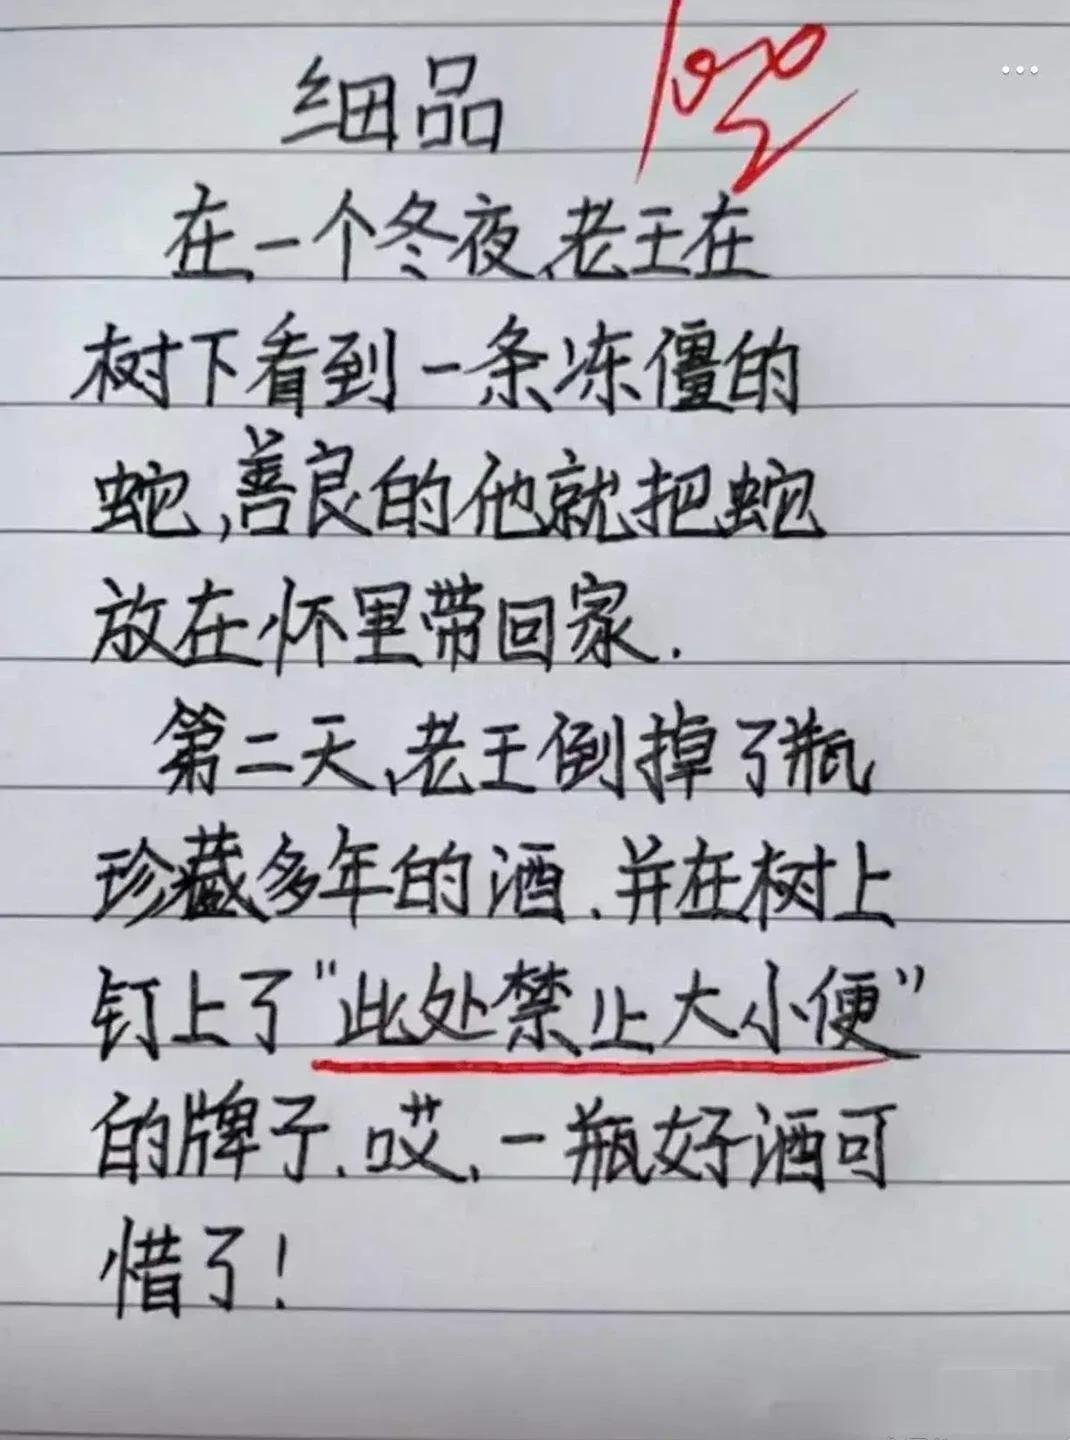 细品
100
在一个冬夜、老王在
树下看到一条冻僵的
蛇,善良的他就把蛇
放在怀里带回家.
第二天、老王倒掉了瓶
珍藏多年的酒、并在树上
钉上了"此处禁止大小便"
的牌子、哎、一瓶好酒可
惜了!